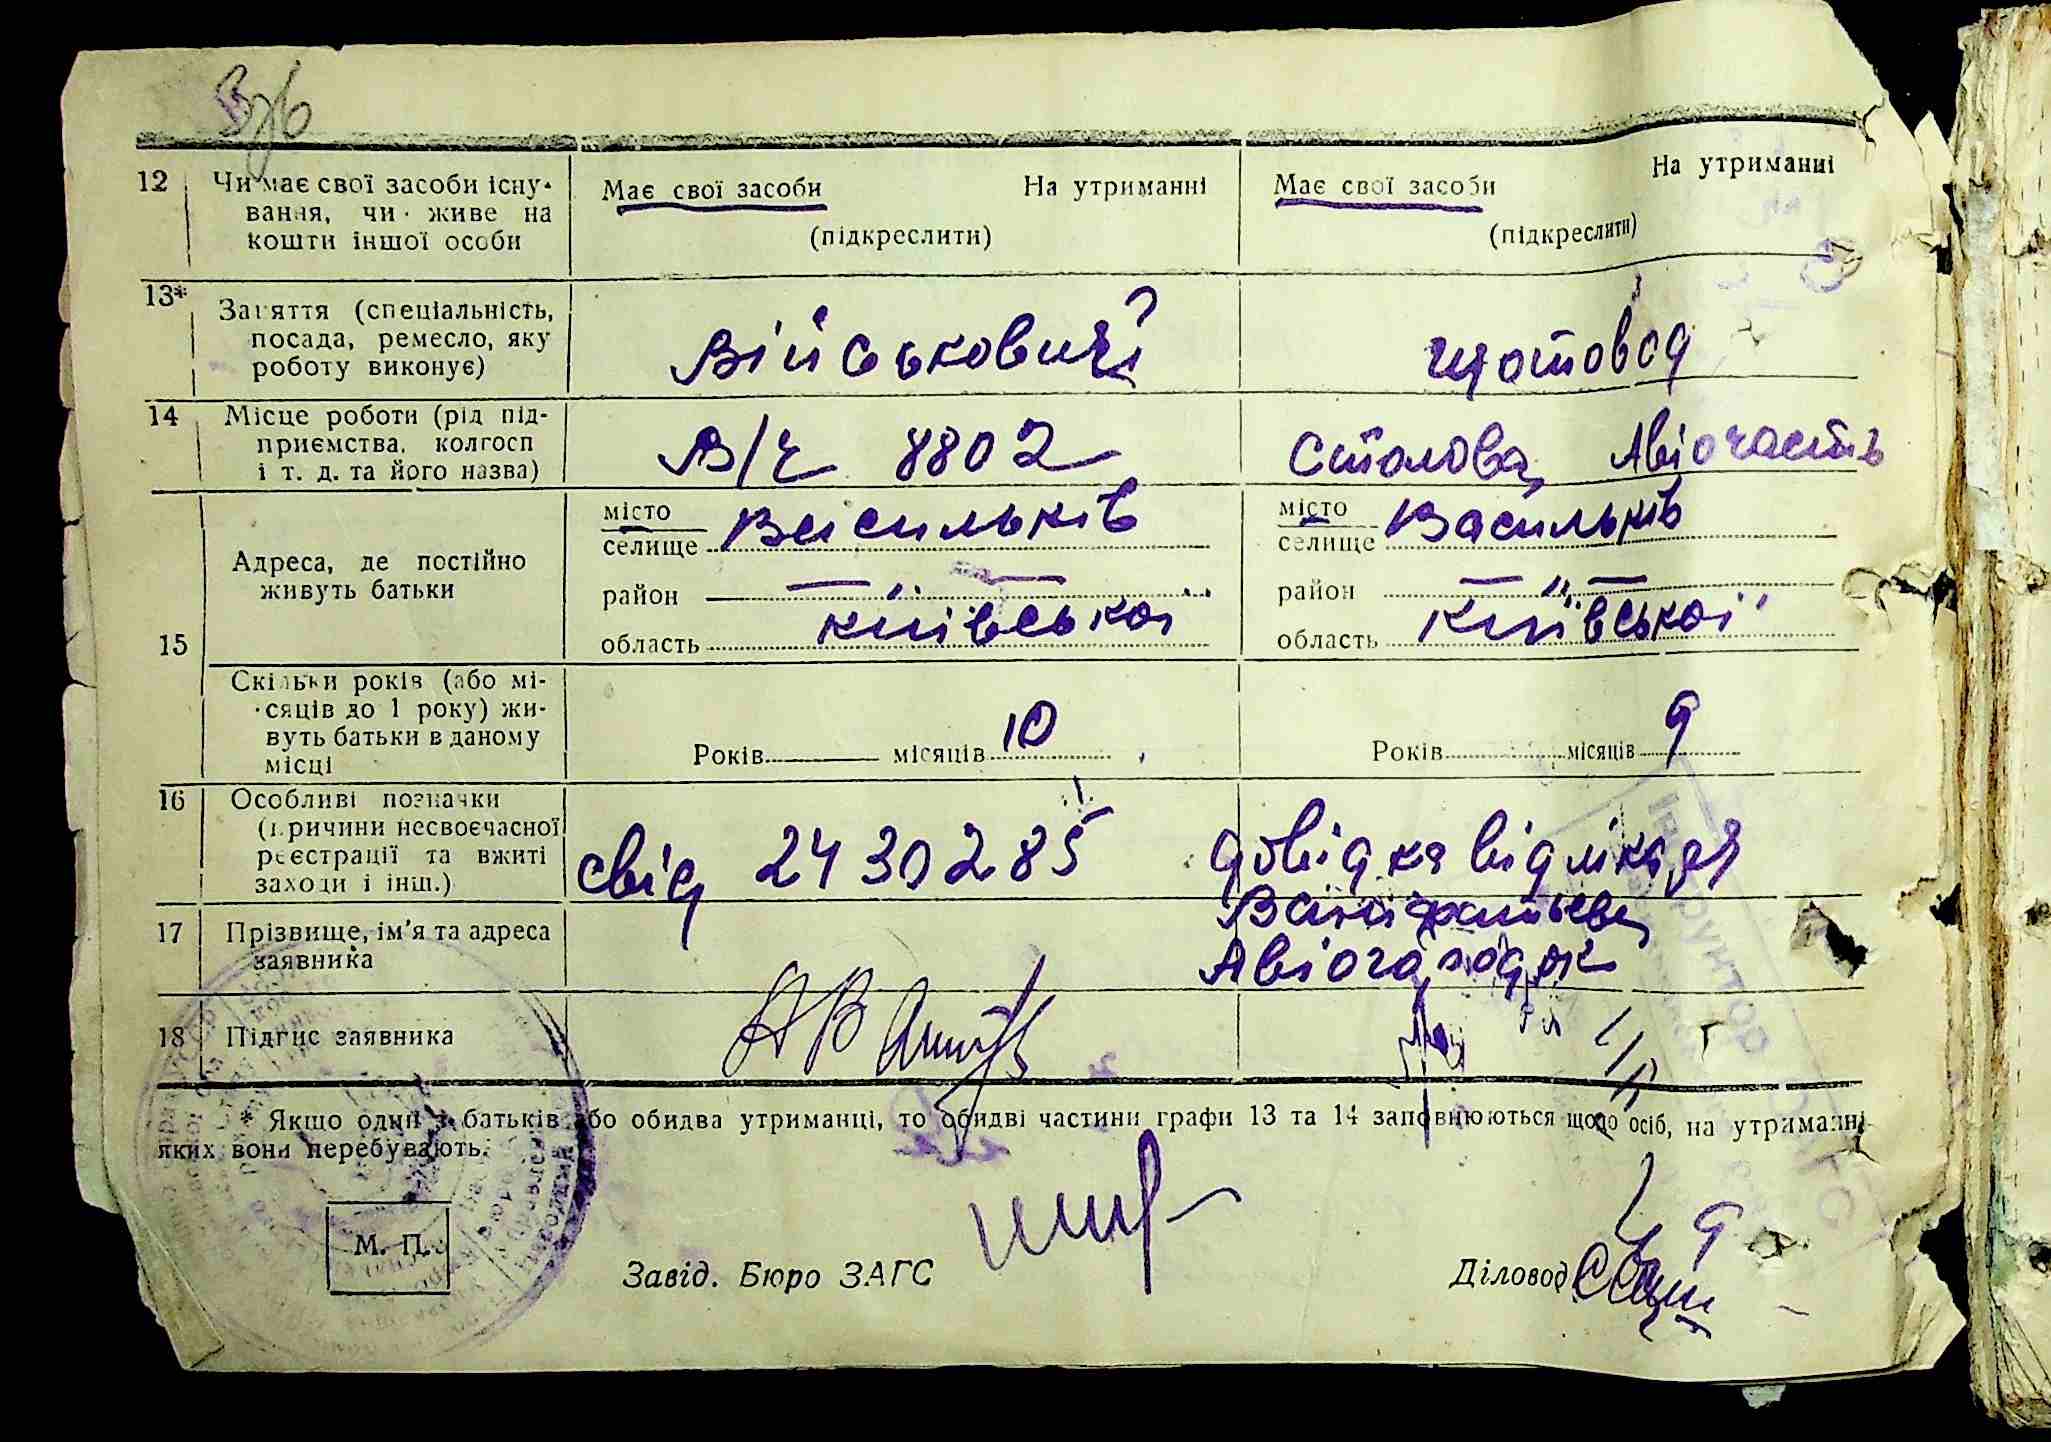 12 Чи має свої засоби існу-
вання, чи живе на
кошти іншої особи
Має свої засоби На утриманні
(підкреслити)
Має свої засоби На утриманні
(підкреслити)
13* Заняття (спеціальність,
посада, ремесло, яку
роботу виконує)
Військовий
щотовод
14 Місце роботи (рід під-
приємства, колгосп
і т. д. та його назва)
В/ч 8802
Столова Авіочасть
15
Адреса, де постійно
живуть батьки
місто
селище Васильків
район —
область київської
місто
селище Васильків
район —
область київської
Скільки років (або мі-
сяців до 1 року) жи-
вуть батьки в даному
місці
Років — місяців 10
Років місяців 9
16 Особливі позначки
(причини несвоєчасної
реєстрації та вжиті
заходи і інш.)
свід 2430285
довідка від лікаря
Авіогородок
17 Прізвище, ім'я та адреса
заявника
18 Підпис заявника
* Якщо один з батьків або обидва утриманці, то обидві частини графи 13 та 14 заповнюються щодо осіб, на утриманні
яких вони перебувають.
М. П.
Завід. Бюро ЗАГС
Діловод